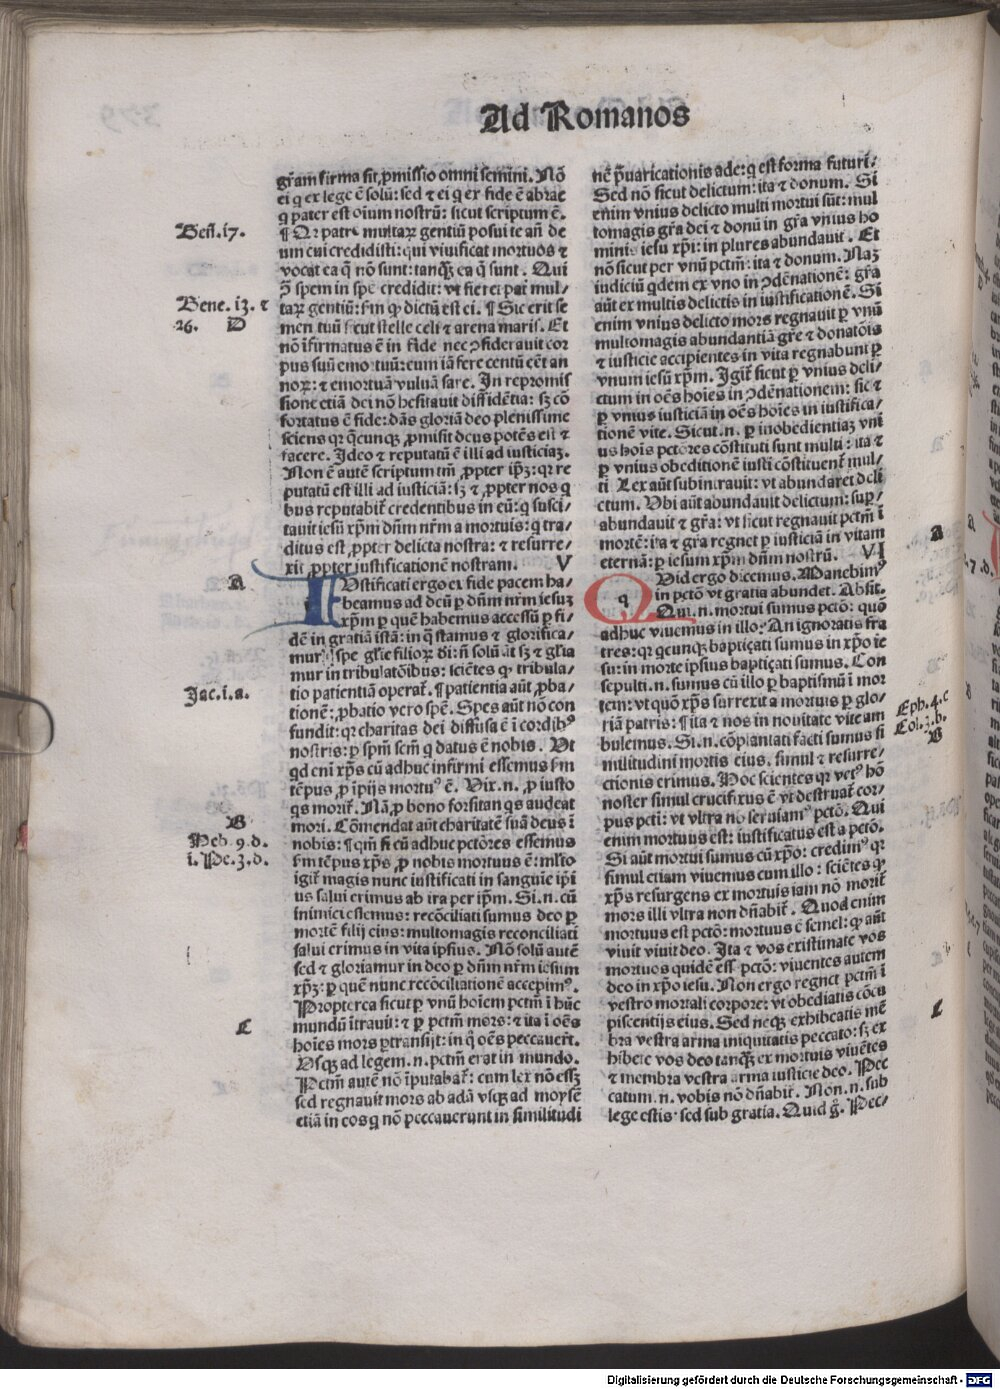 Ad Romanos
gr̃am firma sit ꝓmissio omni semini. Nõ
ei q̃ ex lege ẽ solũ: sed ⁊ ei q̃ ex fide ẽ abrae
q̃ pater est oĩum nostrũ: sicut scriptum ẽ.
Geñ.i7.
¶ Qr patrẽ multaꝝ gentiũ posui te añ de
um cui credidisti: qui viuificat mortuos ⁊
vocat ea q̃ nõ sunt: tanq̃ȝ ea q̃ sunt. Qui
ꝯ̃ spem in spẽ credidit: vt fieret pat̃ mul-
Gene.i3. ⁊
26. D
taꝝ gentiũ: ẜm qꝫ dictũ est ei. ¶ Sic erit se
men tuũ sicut stelle celi ⁊ arena maris. Et
nõ ĩfirmatus ẽ in fide nec ꝯsiderauit cor
pus suũ emortuũ: cum iã fere centũ eẽt an
noꝝ: ⁊ emortuã vuluã sare. In repromis
sione etiã dei nõ hesitauit diffidẽtia: sȝ cõ
fortatus ẽ fide: dãs gloriã deo plenissime
sciens qr q̃cunqȝ ꝓmisit deus potẽs est ⁊
facere. Ideo ⁊ reputatũ ẽ illi ad iusticiaȝ.
Non ẽ autẽ scriptum tm̃ ꝓpter ip̃ȝ: qr re
putatũ est illi ad iusticiã: sȝ ⁊ ꝓpter nos q̃
bus reputabit̃ credentibus in eũ: q̃ susci-
tauit iesũ xp̃m dñm nr̃m a mortuis: q̃ tra-
ditus est ꝓpter delicta nostra: ⁊ resurre/
xit ꝓpter iustificationẽ nostram. V
A
IVstificati ergo ex fide pacem ha-
beamus ad deũ ꝑ dñm nr̃m iesuȝ
xp̃m ꝑ quẽ habemus accessũ ꝑ fi-
dẽ in gratiã istã: in q̃ stamus ⁊ glorifica-
mur ĩ spe gl̃ie filioꝝ di: ñ solũ at̃ sȝ ⁊ gl̃ia
mur in tribulatõibus: sciẽtes qꝫ tribula-
Jac.i.a.
tio patientiã operat̃. ¶ patientia aũt ꝓba/
tionẽ: ꝓbatio vero spẽ. Spes aũt nõ con
fundit: qr charitas dei diffusa ẽ ĩ cordibꝰ
nostris: ꝑ sp̃m scm̃ q̃ datus ẽ nobis. Vt
qd eni xp̃s cũ adhuc infirmi essemus ẜm
tẽpus ꝓ ĩpijs mortuꝰ ẽ. Vix.n. ꝓ iusto
qs morit̃. Nã ꝓ bono forsitan qs audeat
B
mori. Cõmendat aũt charitatẽ suã deus ĩ
Heb.9.d.
i.Pe.3.d.
nobis: ¶ qm̃ si cũ adhuc pctõres essemus
ẜm tẽpus xp̃s ꝓ nobis mortuus ẽ: ml̃to
igit̃ magis nunc iustificati in sanguie ip̃i
us salui erimus ab ira per ip̃m. Si.n. cũ
inimici essemus: recõciliati sumus deo ꝑ
mortẽ filij eius: multomagis reconciliati
salui erimus in vita ipsius. Nõ solũ autẽ
sed ⁊ gloriamur in deo ꝑ dñm nr̃m iesum
xp̃ȝ: ꝑ quẽ nunc recõciliationẽ accepimꝰ.
Propterea sicut ꝑ vnũ hoĩem pctm̃ ĩ hũc
C
mundũ ĩtrauit: ⁊ ꝑ pctm̃ mors: ⁊ ita ĩ oẽs
hoĩes mors ꝑtransijt: in q̃ oẽs peccauer̃t.
Vsqȝ ad legem .n. pctm̃ erat in mundo.
Pctm̃ autẽ nõ ĩputabat̃: cum lex nõ esset.
sed regnauit mors ab adã vsqȝ ad moysẽ
etiã in eos q̃ nõ peccauerunt in similitudi
nẽ p̃uaricationis ade: q̃ est forma futuri/
Sed nõ sicut delictum: ita ⁊ donum. Si
enim vnius delicto multi mortui sũt: mul
tomagis gr̃a dei ⁊ donũ in gr̃a vnius ho
minis iesu xp̃i: in plures abundauit. Et
nõ sicut per vnũ pctm̃: ita ⁊ donum. Naȝ
iudiciũ qdem ex vno in ꝯdẽnationẽ: gr̃a
aũt ex multis delictis in iustificationẽ. Si
enim vnius delicto mors regnauit ꝑ vnũ
multomagis abundantiã gr̃e ⁊ donatõis
⁊ iusticie accipientes in vita regnabunt ꝑ
vnum iesũ xp̃m. Igit̃ sicut ꝑ vnius deli-
ctum in oẽs hoĩes in ꝯdẽnationem: sic ⁊
ꝑ vnius iusticiã in oẽs hoĩes in iustifica/
tionẽ vite. Sicut .n. ꝑ inobedientiaȝ vni
us hoĩs pctores cõstituti sunt multi: ita ⁊
ꝑ vnius obeditionẽ iusti cõstituent̃ mul/
ti Lex aũt subintrauit: vt abundaret deli
ctum. Vbi aũt abundauit delictum: suꝑ/
abundauit ⁊ gr̃a: vt sicut regnauit pctm̃ ĩ
A
mortẽ: ita ⁊ gr̃a regnet ꝑ iusticiã in vitam
eternã: ꝑ iesum xp̃m dñm nostrũ. VI
q
Qvid ergo dicemus. Manebimꝰ
in pctõ vt gratia abundet. Absit.
Qui .n. mortui sumus pctõ: quõ
adhuc viuemus in illo. An ignoratis fra
tres: qr qcunqȝ baptiçati sumus in xp̃o ie
su: in morte ipsius baptiçati sumus. Con
sepulti .n. sumus cũ illo ꝑ baptismũ ĩ mor
Eph.4.c
Col.3.b.
B
tem: vt quõ xp̃s surrexit a mortuis ꝑ glo/
riã patris: ¶ ita ⁊ nos in nouitate vite am
bulemus. Si .n. cõplantati facti sumus si
militudini mortis eius. simul ⁊ resurre/
ctionis erimus. Hoc scientes qr vetꝰ hõ
noster simul crucifixus ẽ vt destruat̃ cor/
pus pcti: vt vltra nõ seruiamꝰ pctõ. Qui
enim mortuus est: iustificatus est a pctõ.
Si aũt mortui sumus cũ xp̃o: credimꝰ qr
simul etiam viuemus cum illo: sciẽtes qꝫ
xp̃s resurgens ex mortuis iam nõ morit̃
mors illi vltra non dñabit̃. Quod enim
mortuus est pctõ: mortuus ẽ semel: q̃ aũt
viuit viuit deo. Ita ⁊ vos existimate vos
mortuos quidẽ esse pctõ: viuentes autem
deo in xp̃o iesu. Non ergo regnet pctm̃ ĩ
C
vestro mortali corpore: vt obediatis cõcu
piscentijs eius. Sed neqȝ exhibeatis mẽ
bra vestra arma iniquitatis peccato: sȝ ex
hibete vos deo tanqȝ ex mortuis viuẽtes
⁊ membra vestra arma iusticie deo. Pec
catum .n. vobis nõ dñabit̃. Non .n. sub
lege estis: sed sub gratia. Quid g̊. Pec/
Digitalisierung gefördert durch die Deutsche Forschungsgemeinschaft - DFG